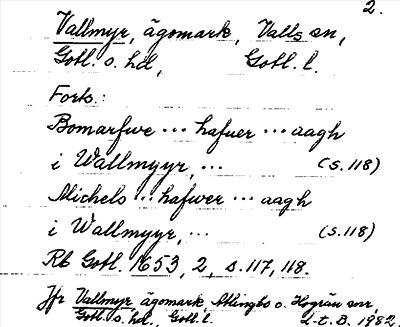 2.
Vallmyr, ägomark, Valls sn,
Gotl. s. hd, Gotl. l.
Forts.:
Bomarfwe ... hafuer ... aagh
i Wallmyyr, ... (s. 118)
Michels ... hafwer ... aagh
i Wallmyyr, ... (s. 118)
Rb Gotl. 1653, 2, s. 117, 118.
Jfr Vallmyr, ägomark, Atlingbo o. Hogrän snr
Gotl. s. hd., Gotl. l. L-t. B. 1982